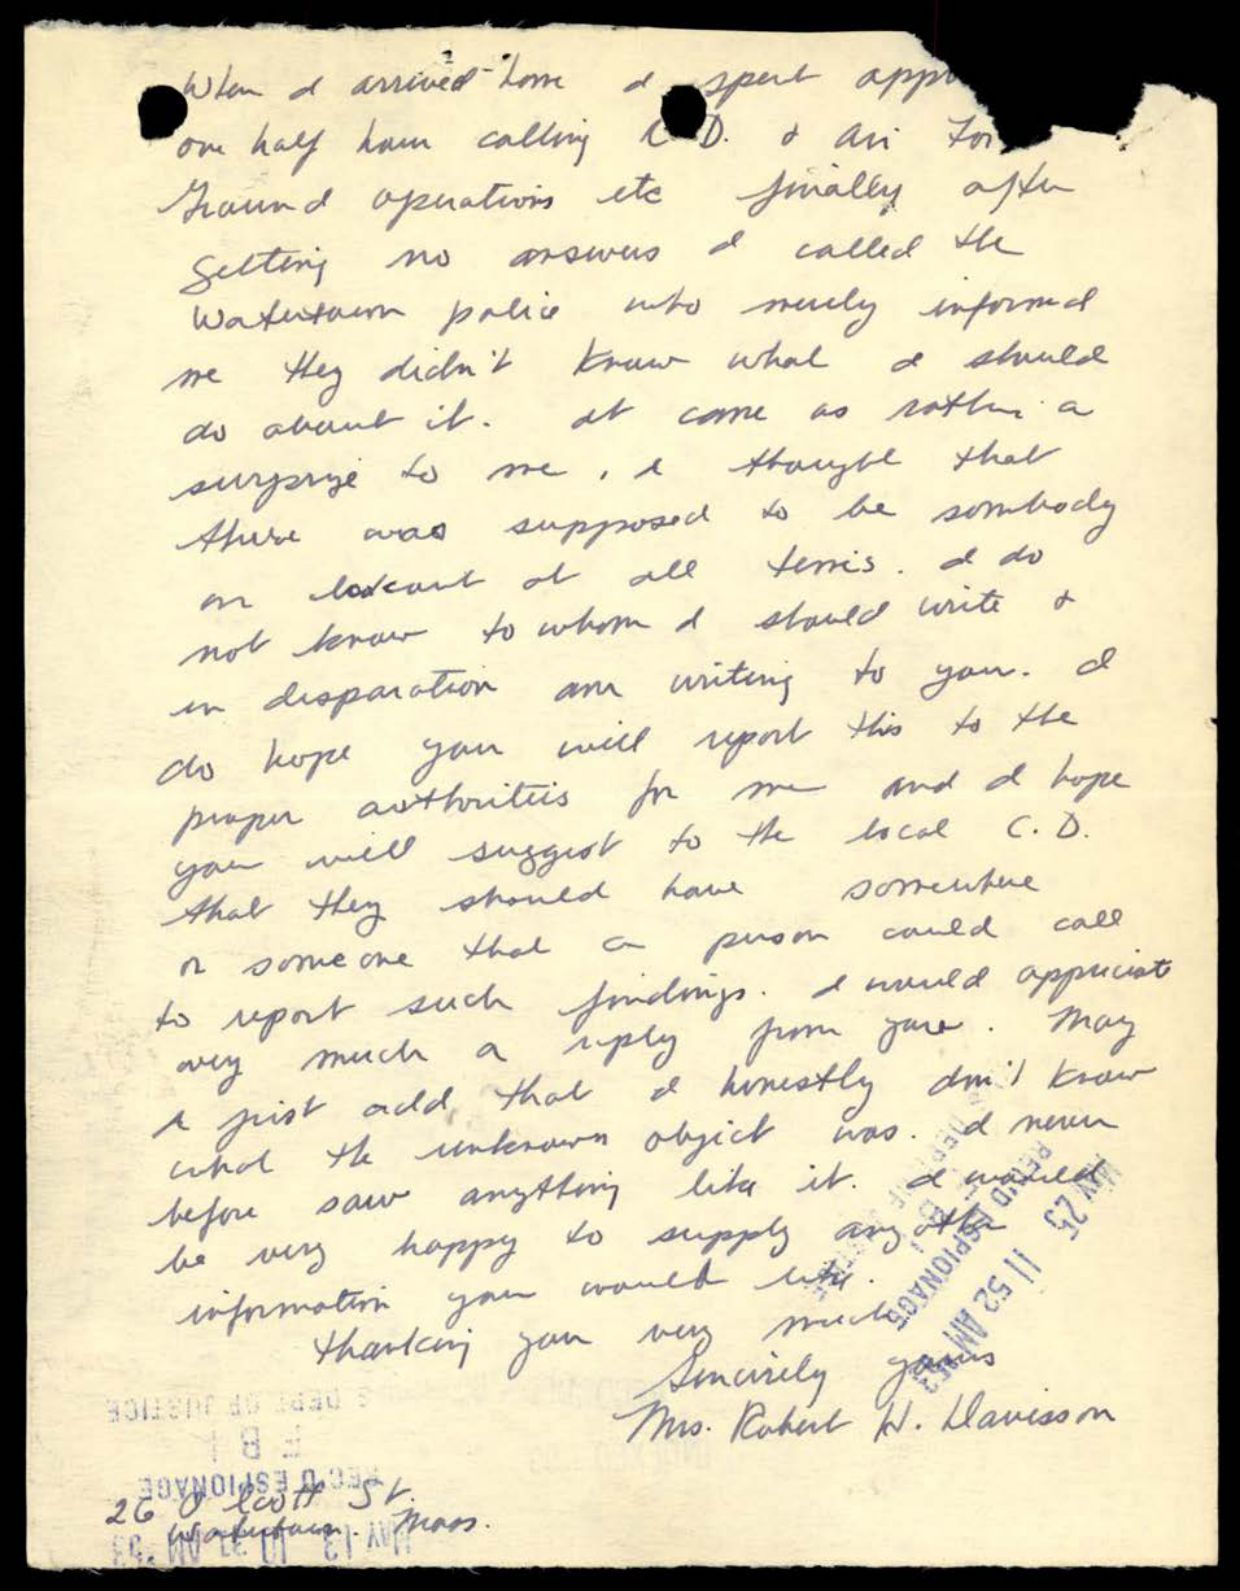 When I arrived home I spent appr
one half hour calling C.D. & Air For
Ground operations etc finally after
getting no answers I called the
Watertown police who merely informed
me they didn't know what I should
do about it. It came as rather a
surprize to me, I thought that
there was supposed to be sombody
on lookout at all temis. I do
not know to whom I should write &
in desparation am writing to you. I
do hope you will report this to the
proper authoritiis for me and I hope
you will suggest to the local C.D.
that they should have somewhere
or someone that a person could call
to report such findings. I would appriciate
very much a reply from you. May
I just add that I honestly don't know
what the unknown object was. I never
before saw anything like it. I would
be very happy to supply any other
information you would like.
Thanking you very much
Sincirely yours
Mrs. Robert W. Davisson
MAY 25 11 52 AM '53
REC'D ESPIONAGE
F B I
DEPT OF JUSTICE
F B I
REC'D ESPIONAGE
26 Scott St.
Watertown. Mass.
MAY 13 10 AM '53